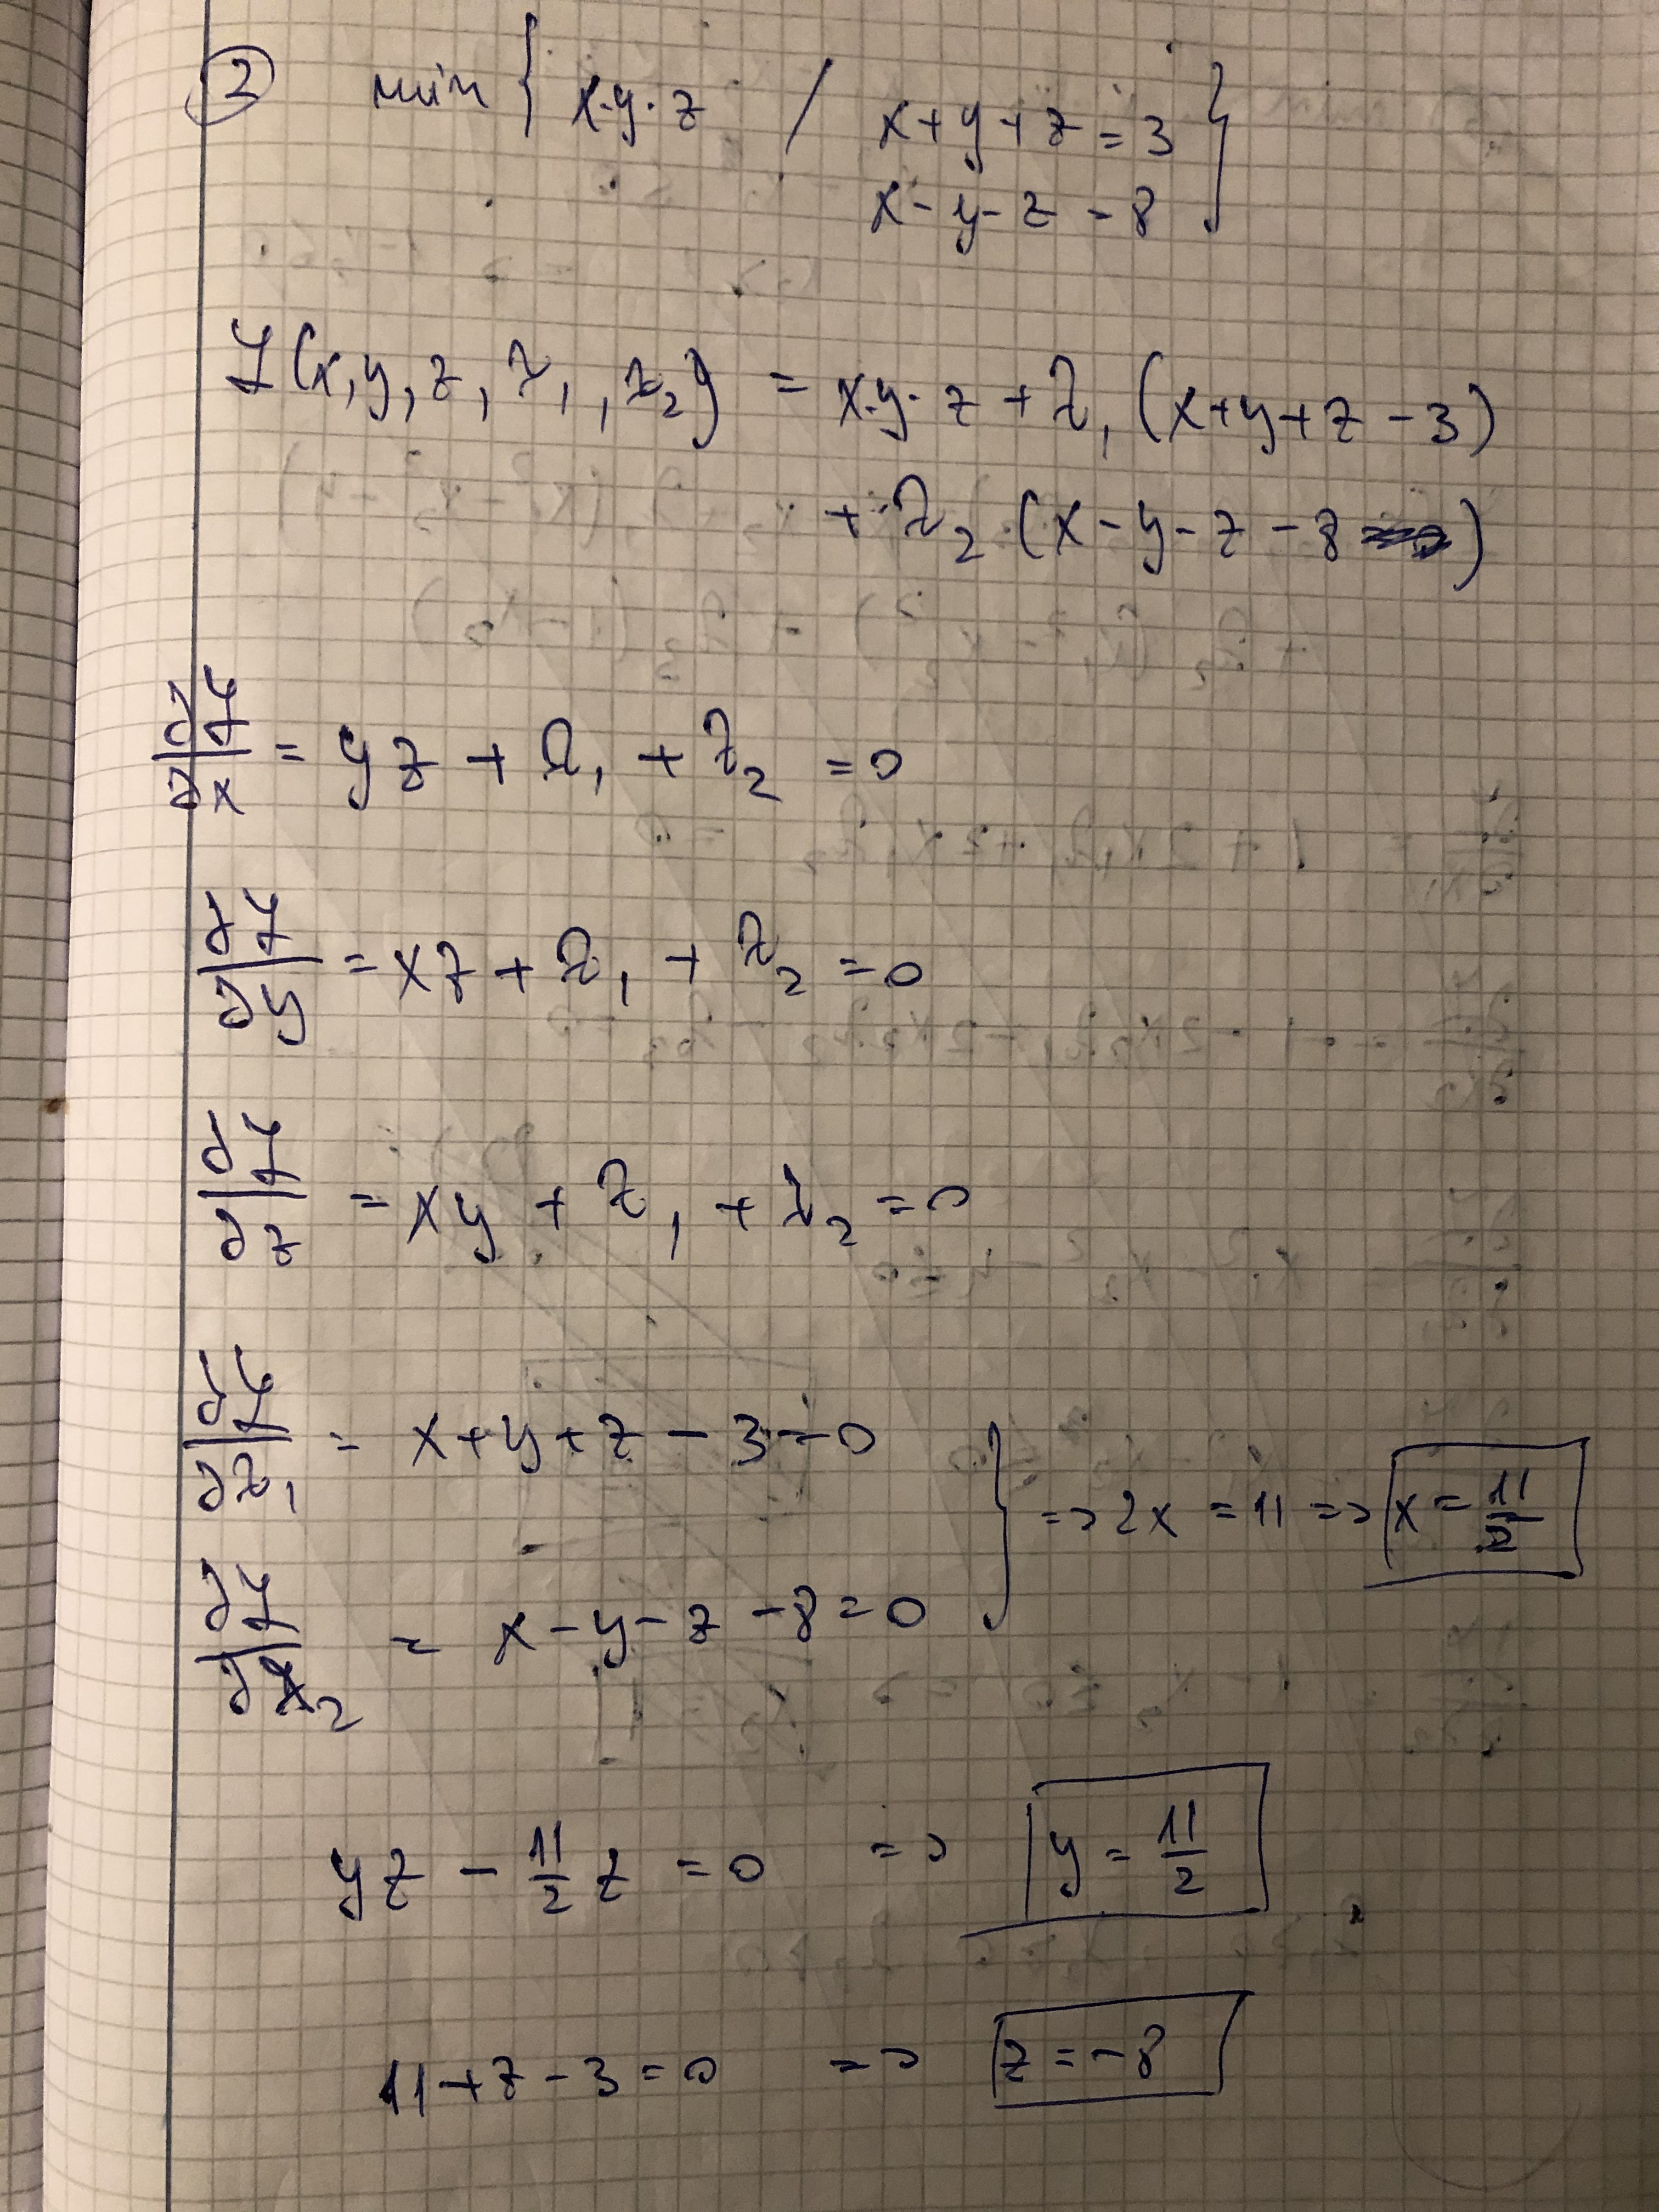 ② min { x·y·z / x+y+z=3 }
x-y-z=8
ℒ(x,y,z,λ₁,λ₂) = x·y·z+λ₁(x+y+z-3)
+λ₂(x-y-z-8)
∂ℒ/∂x = yz+λ₁+λ₂=0
∂ℒ/∂y = xz+λ₁+λ₂=0
∂ℒ/∂z = xy+λ₁+λ₂=0
∂ℒ/∂λ₁ = x+y+z-3=0
} => 2x=11 => x=11/2
∂ℒ/∂λ₂ = x-y-z-8=0
yz - 11/2 z = 0 => y = 11/2
11+z-3=0 => z=-8